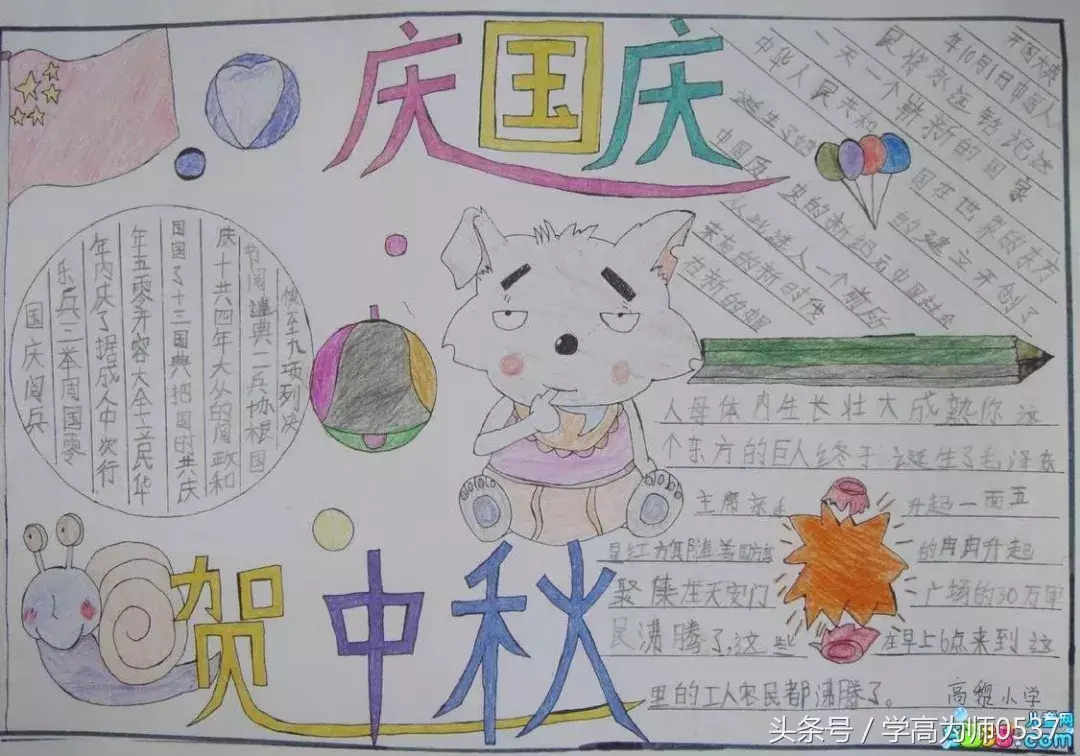 庆国庆
开国大典
年10月1日中国人
民将永远铭记这
一天一个崭新的国家
中华人民共和国在世界的东方
诞生了
中国历史的新纪元中国社会
的建立开创了
从此进入一个前所
未有的新时代
在新的
人母体内生长壮大成熟你这
个东方的巨人终于诞生了毛泽东
主席亲手升起一面五
星红旗随着国旗的冉冉升起
聚集在天安门广场的30万军
民沸腾了,这些在早上6点来到这
里的工人农民都沸腾了。
高
小学
快至九项列决
节阅谨典一兵协根国
庆十共四年大从的阅政和
国国了十三国典把国时共庆
年五零并容大全六首民华
年内庆了据成人中次行
乐兵三举周国零
国庆阅兵
贺中秋
头条号 / 学高为师0537